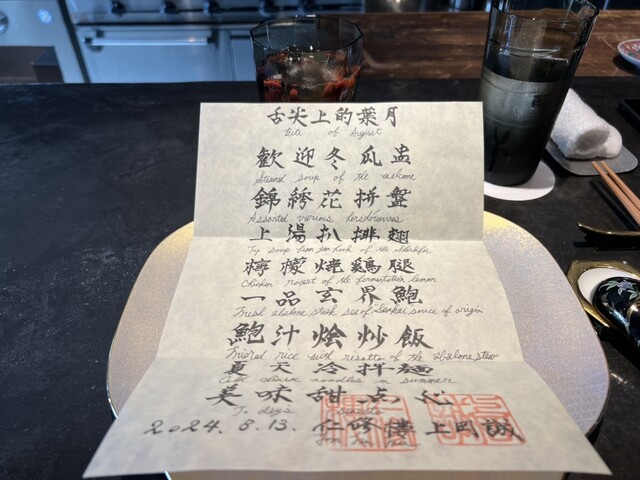 舌尖上的葉月
Bite of August
歓迎冬瓜盅
Steamed soup of the welcome
錦綉花拼盤
Assorted various horsdoeuvres
上湯扒排翅
Top soup of the
檸檬焼鶏腿
Chicken roast of the fermentation lemon
一品玄界鮑
Fresh abalone steak sea of Genkai source of origin
鮑汁烩炒飯
Fried rice with risotto of the abalone stew
夏天冷拌麺
Cold noodles in summer
美味甜点心
To days
2024.8.13. 仁修樓 上岡誠